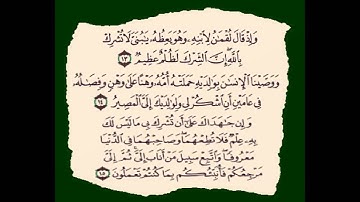 وَإِذْ قَالَ لُقْمَٰنُ لِٱبْنِهِۦ وَهُوَ يَعِظُهُۥ يَٰبُنَىَّ لَا تُشْرِكْ
بِٱللَّهِ إِنَّ ٱلشِّرْكَ لَظُلْمٌ عَظِيمٌ ١٣
وَوَصَّيْنَا ٱلْإِنسَٰنَ بِوَٰلِدَيْهِ حَمَلَتْهُ أُمُّهُۥ وَهْنًا عَلَىٰ وَهْنٍ وَفِصَٰلُهُۥ
فِى عَامَيْنِ أَنِ ٱشْكُرْ لِى وَلِوَٰلِدَيْكَ إِلَىَّ ٱلْمَصِيرُ ١٤
وَإِن جَٰهَدَاكَ عَلَىٰٓ أَن تُشْرِكَ بِى مَا لَيْسَ لَكَ
بِهِۦ عِلْمٌ فَلَا تُطِعْهُمَا وَصَاحِبْهُمَا فِى ٱلدُّنْيَا
مَعْرُوفًا وَٱتَّبِعْ سَبِيلَ مَنْ أَنَابَ إِلَىَّ ثُمَّ إِلَىَّ
مَرْجِعُكُمْ فَأُنَبِّئُكُم بِمَا كُنتُمْ تَعْمَلُونَ ١٥